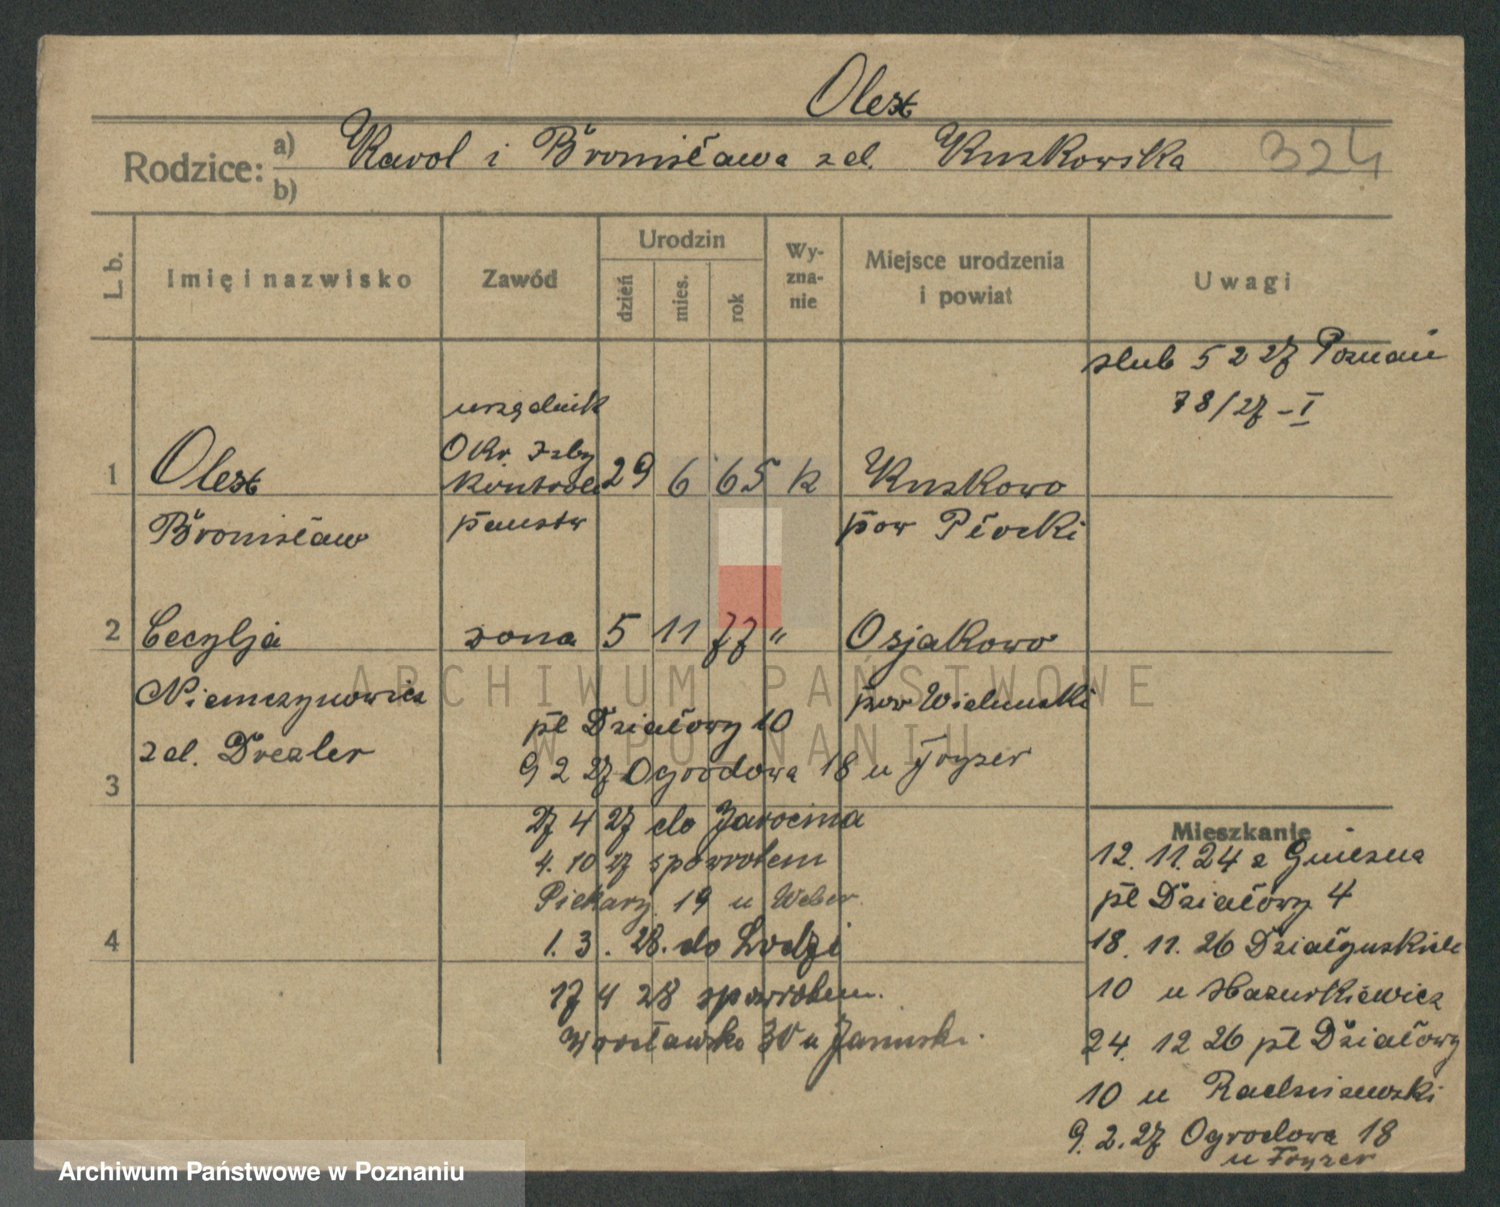 Olext
Rodzice: a) Karol i Bronisława z d. Kuskowska 324
b)
L. b. Imię i nazwisko Zawód Urodzin dzień mies. rok Wyznanie Miejsce urodzenia i powiat Uwagi
ślub 5 2 27 Poznań
78/27 - I
urzędnik
Okr Izby
1 Olext kontroli 29 6 65 k Kuskowo
Bronisław państw pow Płocki
2 Cecylja żona 5 11 77 " Osjakowo
Niemczynowicz pow Wieluński
z d. Drezler
pl Działowy 10
3 9 2 27 Ogrodowa 18 u Fryzer
27 4 27 do Jarocina
4. 10 27 spowrotem
Piekary 19 u Weber.
4 1. 3. 28. do Łodzi
17 4 28 spowrotem.
Wrocławska 30 u Jasinski.
Mieszkanie
12. 11. 24 z Gniezna
pl Działowy 4
18. 11. 26
10 u Mazurkiewicz
24. 12 26 pl Działowy
10 u Radziszewski
9. 2. 27 Ogrodowa 18
u Fryzer
ARCHIWUM PAŃSTWOWE
W POZNANIU
Archiwum Państwowe w Poznaniu